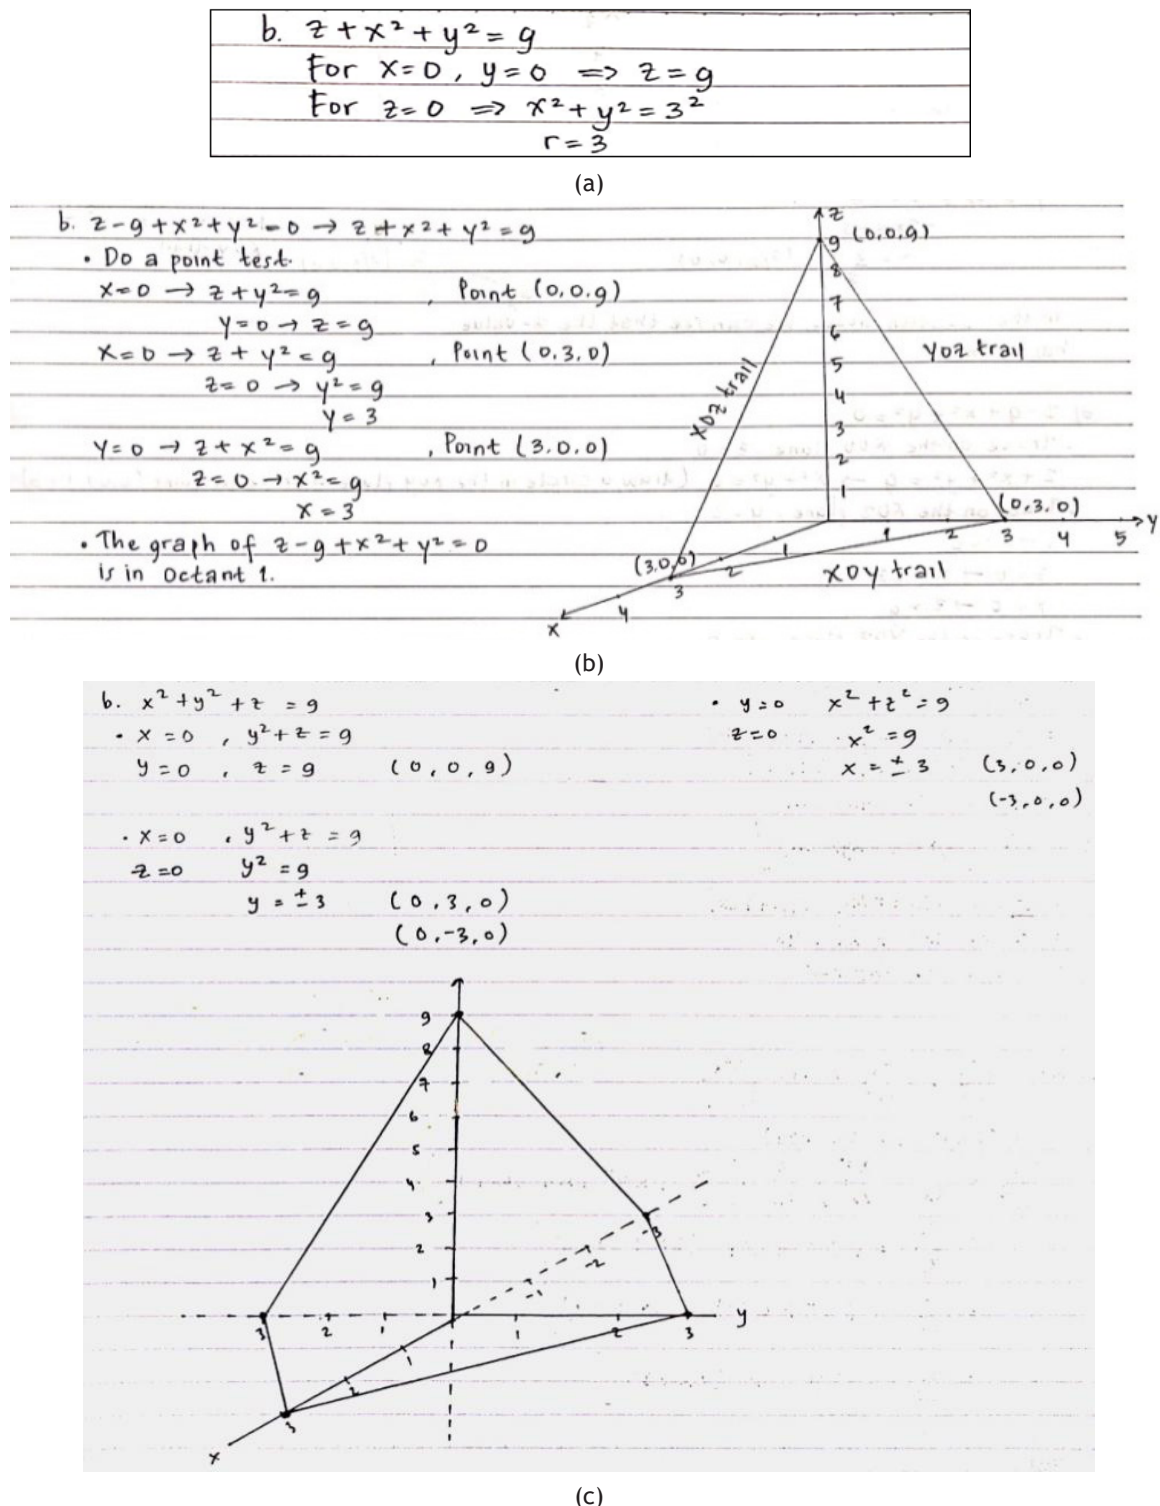 b. z + x² + y² = 9
For x=0, y=0 => z=9
For z=0 => x² + y² = 3²
r=3
(a)
b. z-9+x²+y²=0 → z+x²+y²=9
• Do a point test.
x=0 → z+y²=9 , Point (0,0,9)
y=0 → z=9
x=0 → z+y²=9 , Point (0,3,0)
z=0 → y²=9
y=3
y=0 → z+x²=9 , Point (3,0,0)
z=0 → x²=9
x=3
• The graph of z-9+x²+y²=0
is in octant 1.
z
9 (0,0,9)
8
7
6
5
4
3
2
1
XOZ trail
YOZ trail
(0,3,0)
1 2 3 4 5 y
1
2
(3,0,0)
3
4
x
XOY trail
(b)
b. x² + y² + z = 9
• x=0 , y²+z=9
y=0 , z=9 (0,0,9)
• x=0 , y²+z=9
z=0 y²=9
y=±3 (0,3,0)
(0,-3,0)
• y=0 x²+z²=9
z=0 x²=9
x=±3 (3,0,0)
(-3,0,0)
9
8
7
6
5
4
3
2
1
-3
-2
-1
3 2 1 1 2 3 y
1
2
3
x
(c)